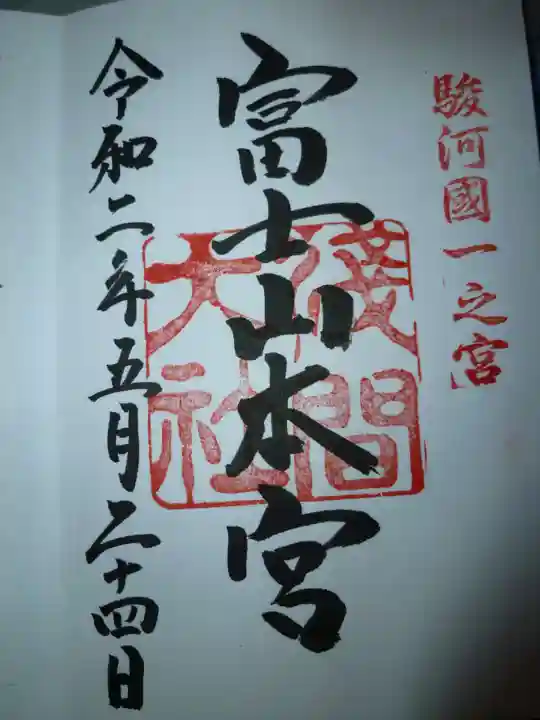 駿河國一之宮
富士山本宮
淺間
大社
令和二年五月二十四日